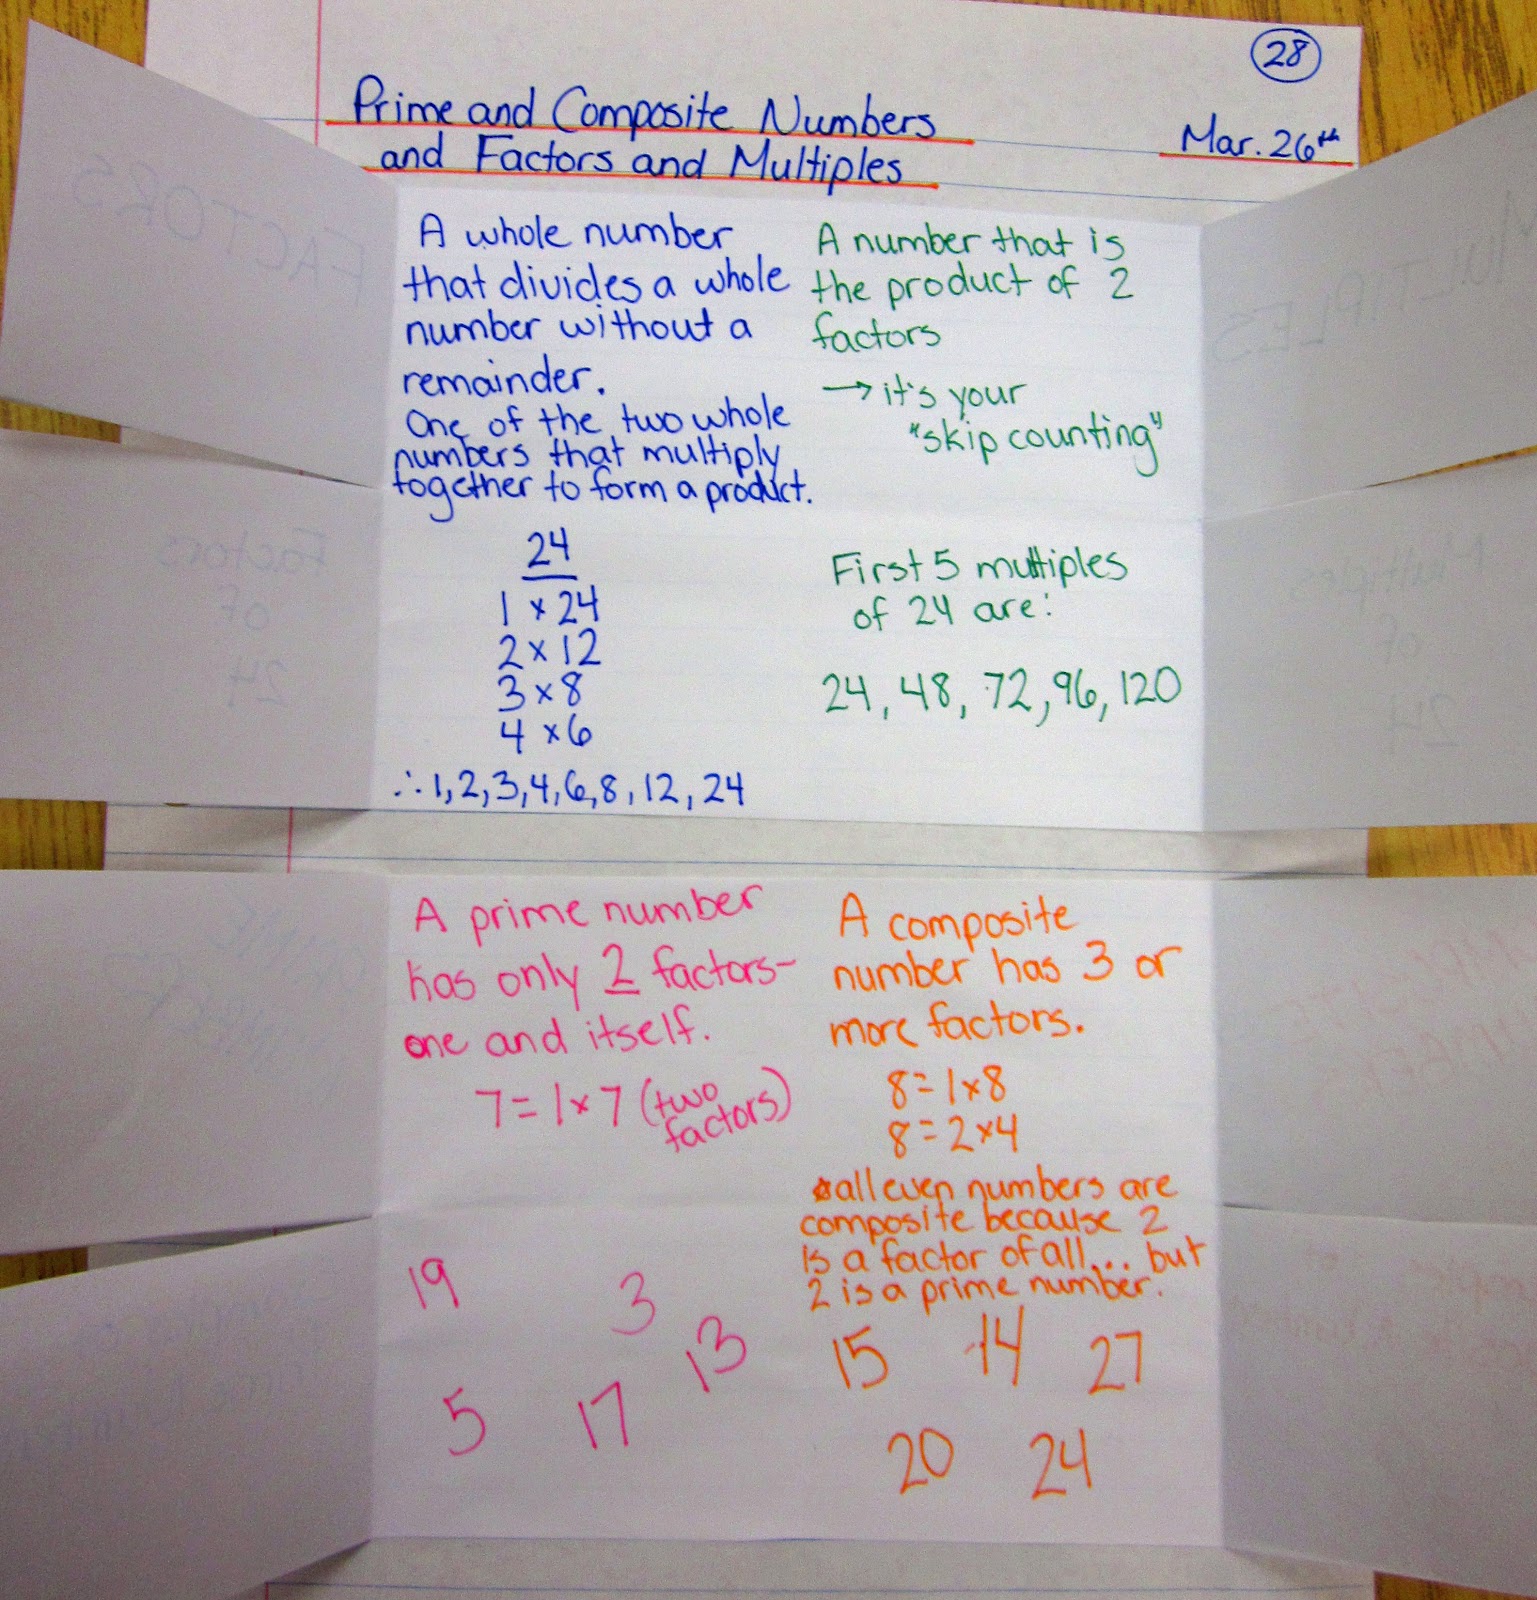 28
Prime and Composite Numbers
and Factors and Multiples
Mar. 26th
FACTORS
A whole number
that divides a whole
number without a
remainder.
One of the two whole
numbers that multiply
together to form a product.
A number that is
the product of 2
factors
→ it's your
"skip counting"
MULTIPLES
Factors
of
24
24
1 × 24
2 × 12
3 × 8
4 × 6
∴ 1, 2, 3, 4, 6, 8, 12, 24
First 5 multiples
of 24 are:
24, 48, 72, 96, 120
Multiples
of
24
A prime number
has only 2 factors-
one and itself.
7 = 1 × 7 (two
factors)
A composite
number has 3 or
more factors.
8 = 1 × 8
8 = 2 × 4
*all even numbers are
composite because 2
is a factor of all... but
2 is a prime number.
19
3
13
5
17
15 14 27
20 24